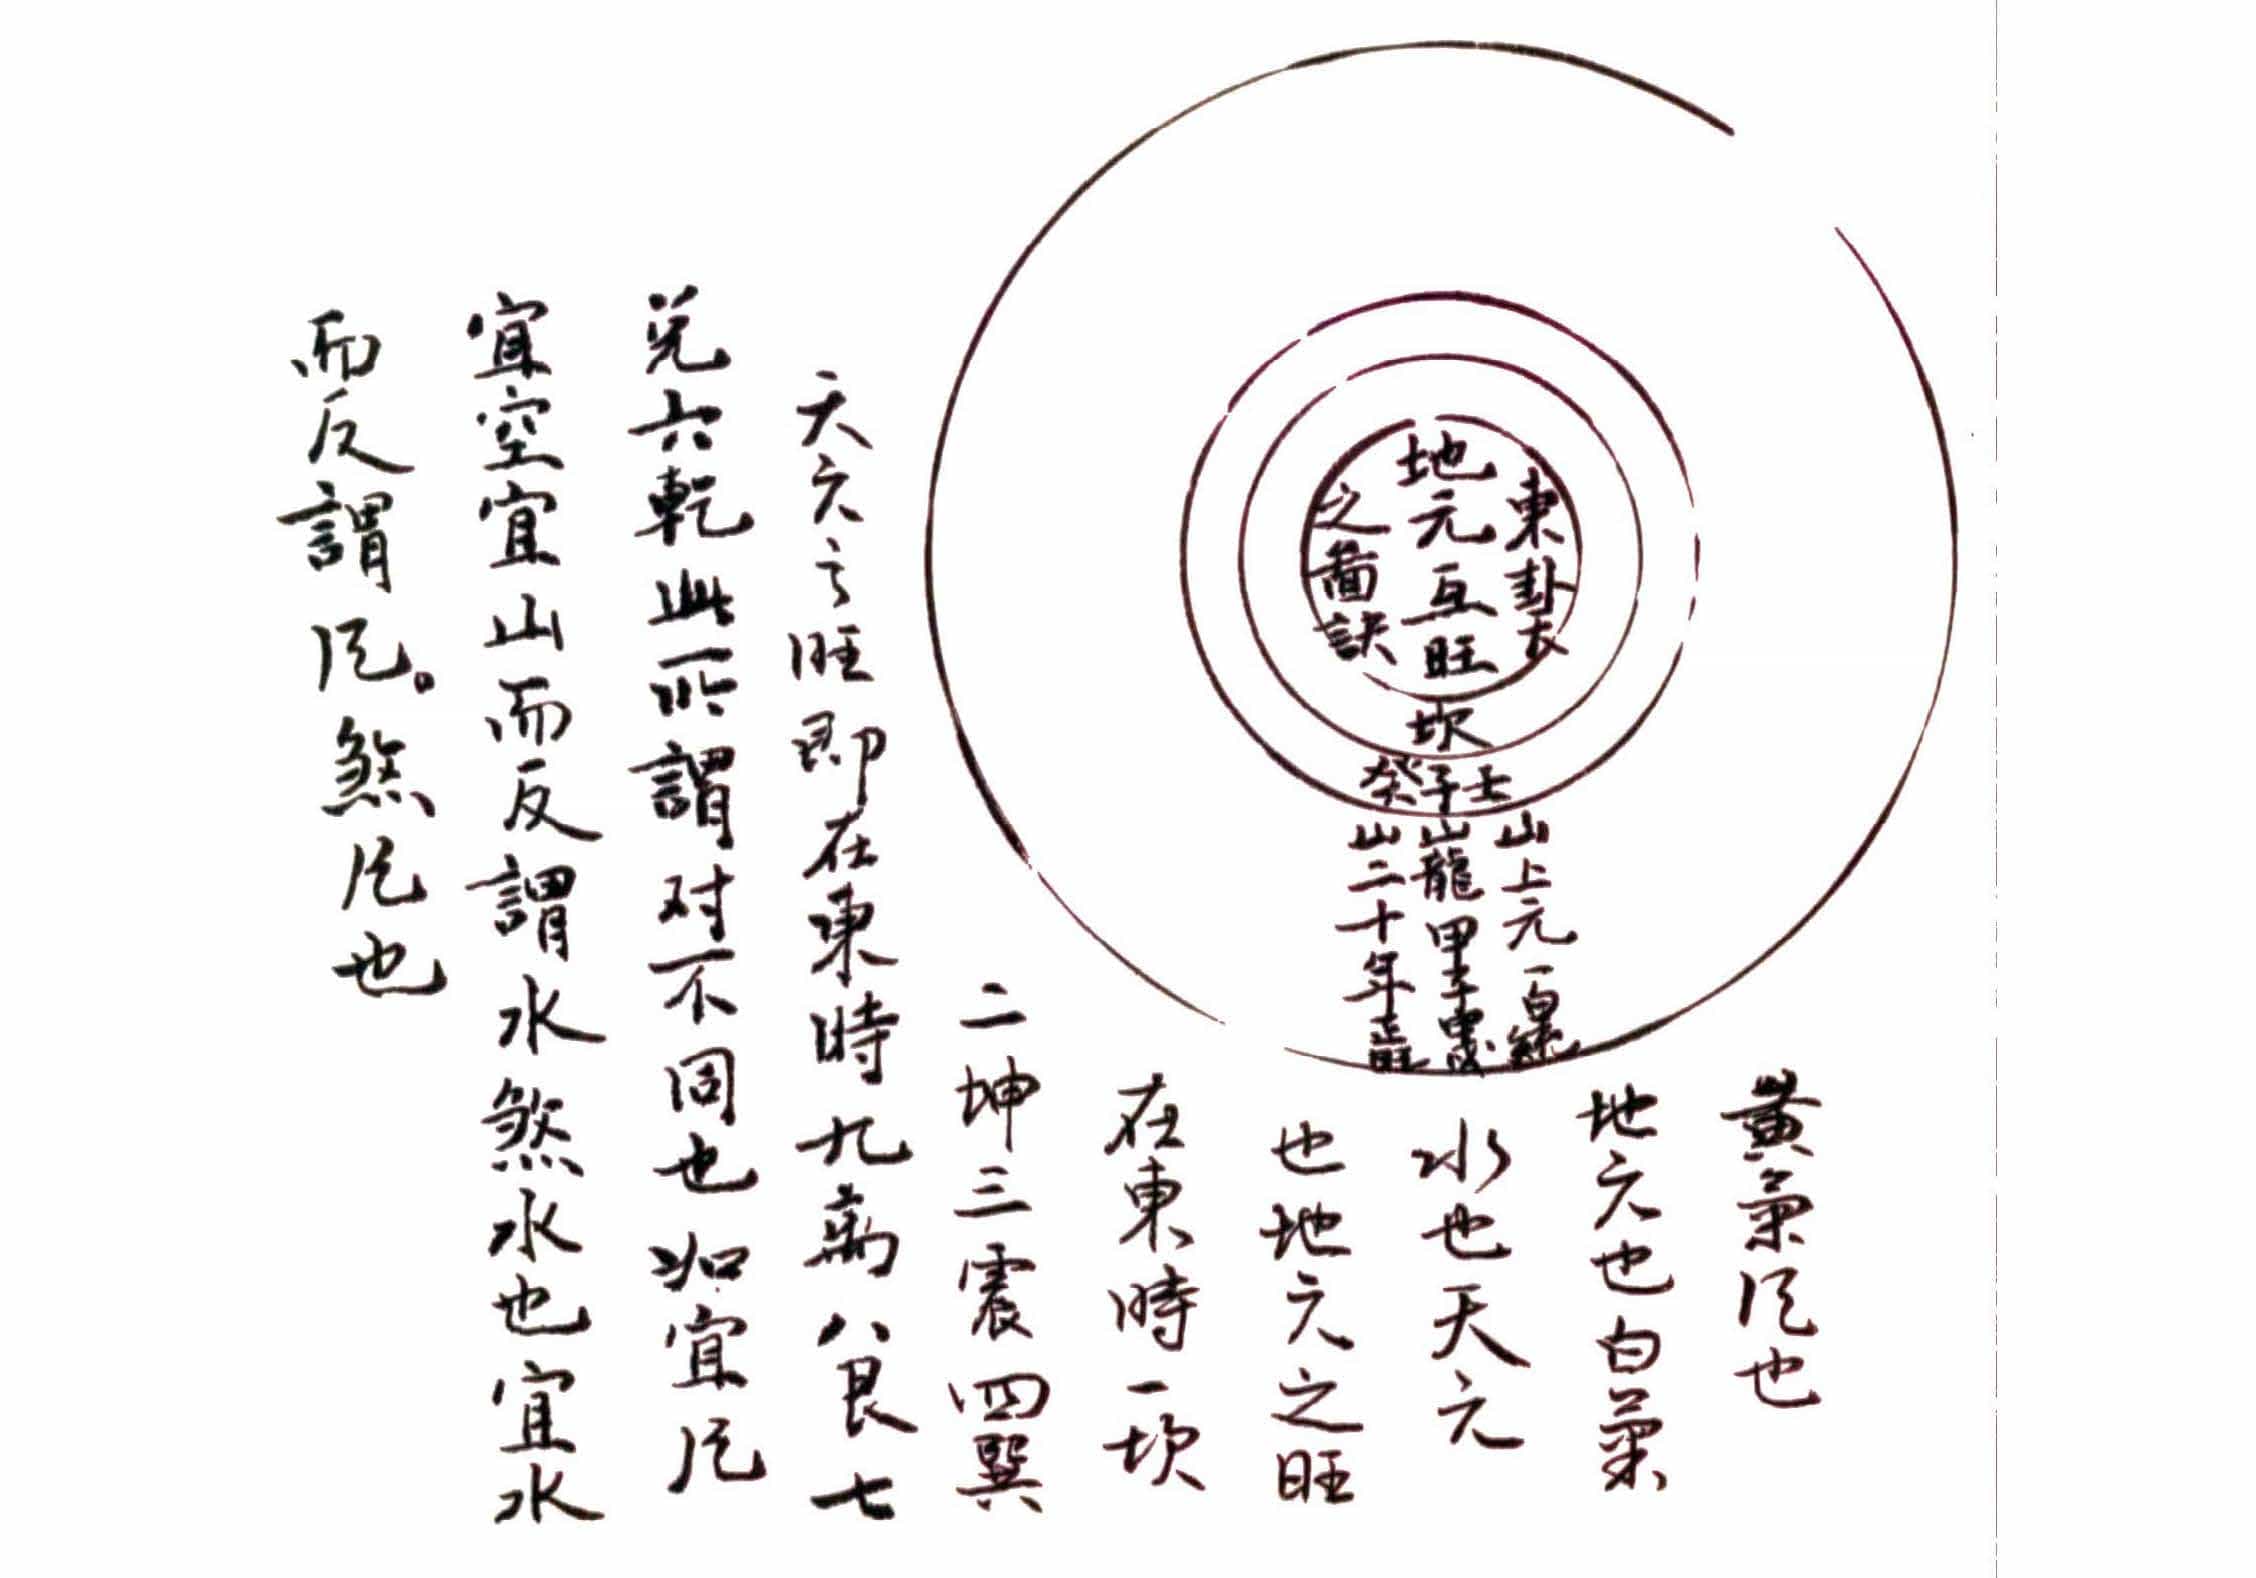 東卦衣
地元互旺
之面訣
坎
壬
子
癸
山上元一白
山龍甲子
山二十年正旺
黃氣
也
地六也白氣
水也天元
也地六之旺
在東時一坎
二坤三震四巽
天六之旺即在東時九离八艮七
兌六乾此所謂对不同也如宜
宜空宜山而反謂水煞水也宜水
而反謂
煞
也